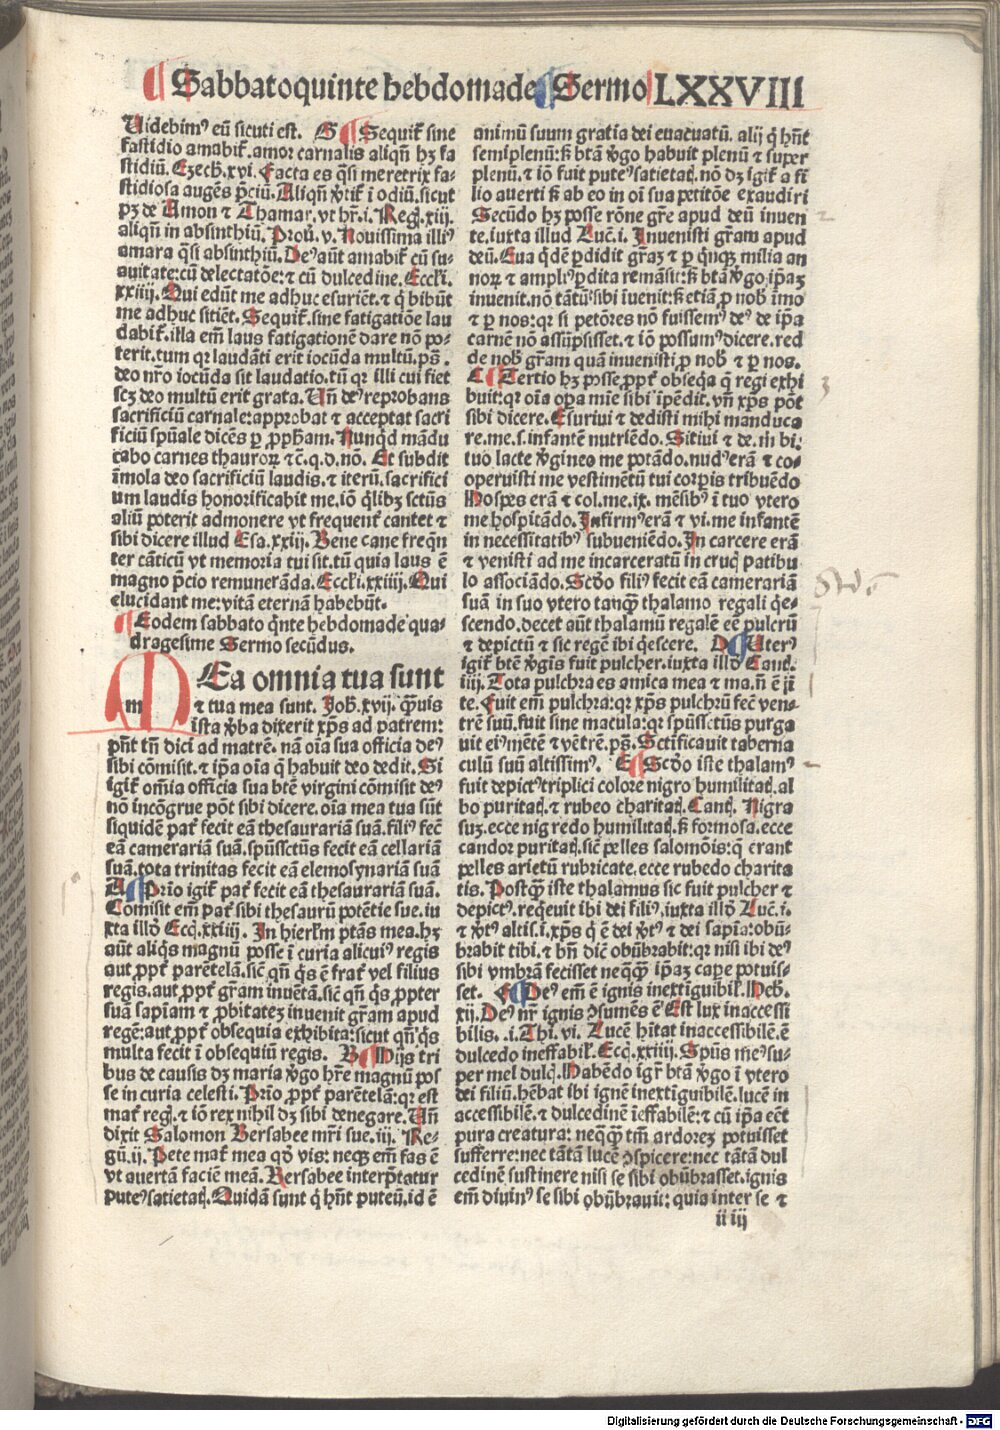 ¶ Sabbato quinte hebdomade ¶ Sermo LXXVIII
Uidebimꝰ eū sicuti est. G ¶ Sequit᷑ sine
fastidio amabit᷑. amor carnalis aliqñ hꝫ fa
stidiū. Ezech. xvi. Facta es q̄si meretrix fa-
stidiosa augēs p̄ciū. Aliqñ v̓tit᷑ ī odiū. sicut
pꝫ de Amon ⁊ Thamar. vt hr̄. i. Reg. xiij.
aliqñ in absinthiū. Prou. v. Nouissima illiꝰ
amara q̄si absinthiū. Deꝰ aūt amabit᷑ cū su-
auitate: cū delectatōe: ⁊ cū dulcedine. Eccli.
xxiiij. Qui edūt me adhuc esuriēt. ⁊ q̇ bibūt
me adhuc sitiēt. Sequit᷑. sine fatigatiōe lau
dabit᷑. illa em̄ laus fatigationē dare nō po-
terit. tum qꝛ laudāti erit iocūda multū. pṡ.
deo nr̄o iocūda sit laudatio. tū qꝛ illi cui fiet
scꝫ deo multū erit grata. Un̄ deꝰ reprobans
sacrificiū carnale: approbat ⁊ acceptat sacri
ficiū sp̄uale dicēs ꝑ ꝓph̄am. Nunq̇d mādu
cabo carnes thauroꝝ ⁊c̄. q. d. nō. Et subdit
īmola deo sacrificiū laudis. ⁊ iterū. sacrifici
um laudis honorificabit me. iō q̇libꝫ sctūs
aliū poterit admonere vt frequent᷑ cantet ⁊
sibi dicere illud Esa. xxiij. Bene cane freqn̄
ter cāticū vt memoria tui sit. tū quia laus ē
magno p̄cio remunerāda. Eccli. xxiiij. Qui
elucidant me: vitā eternā habebūt.
¶ Eodem sabbato q̇nte hebdomade qua-
dragesime Sermo secūdus.
MEa omnia tua sunt
⁊ tua mea sunt. Joh. xvij. Quis
ista v̓ba dixerit xp̄s ad patrem:
pn̄t tn̄ dici ad matrē. nā oīa sua officia deꝰ
sibi cōmisit. ⁊ ip̄a oīa q̄ habuit deo dedit. Si
igit᷑ om̄ia officia sua btē virgini cōmisit deꝰ
nō incōgrue pōt sibi dicere. oīa mea tua sūt
liquidē pat᷑ fecit eā thesaurariā suā. filiꝰ fec̄
eā camerariā suā. sp̄ussctūs fecit eā cellariā
suā. tota trinitas fecit eā elemosynariā suā
A ¶ Prīo igit᷑ pat᷑ fecit eā thesaurariā suā.
Comisit em̄ pat᷑ sibi thesaurū potētie sue. iu
xta illd̓ Eccī. xxiiij. In hierl̄m ptās mea. hꝫ
aūt aliq̇s magnū posse ī curia alicuiꝰ regis
aut ꝓpt᷑ parētelā. sic̄ qn̄ q̇s ē frat᷑ vel filius
regis. aut ꝓpt᷑ gr̄am inuētā. sic̄ qn̄ q̇s ꝓpter
suā sapīam ⁊ ꝓbitatē inuenit gr̄am apud
regē: aut ꝓpt᷑ obsequia exhibita: sicut qn̄ q̇s
multa fecit ī obsequiū regis. B ¶ Hijs tri
bus de causis dꝫ maria v̓go hr̄e magnū pos
se in curia celesti. Prīo ꝓpt᷑ parētelā: qꝛ est
mat᷑ regꝭ. ⁊ iō rex nihil dꝫ sibi denegare. Un̄
dixit Salomon Bersabee mr̄i sue. iij. Re-
gū. ij. Pete mat᷑ mea qd̓ vis: neqꝫ em̄ fas ē
vt auertā faciē meā. Bersabee interp̄tatur
puteꝰ satietatꝭ. Quidā sunt q̇ hn̄t puteū. id ē
animū suum gratia dei euacuatū. alij q̇ hn̄t
semiplenū: sꝫ btā v̓go habuit plenū ⁊ super
plenū. ⁊ iō fuit puteꝰ satietatꝭ. nō dꝫ igit᷑ a fi
lio auerti sꝫ ab eo in oī sua petitōe exaudiri
Secūdo hꝫ posse rōne gr̄e apud deū inuen
te. iuxta illud Luc̄. i. Inuenisti gr̄am apud
deū. Eua q̇dē ꝑdidit gr̄aꝫ ⁊ ꝑ q̇nqꝫ milia an
noꝝ ⁊ ampliꝰ ꝑdita remāsit: sꝫ btā v̓go ip̄aꝫ
inuenit. nō tātū sibi īuenit: sꝫ etiā ꝓ nob̓ īmo
⁊ ꝓ nos: qꝛ si petōres nō fuissemꝰ deꝰ de ip̄a
carnē nō assūpsisset. ⁊ iō possumꝰ dicere. red
de nob̓ gr̄am quā inuenisti ꝓ nob̓ ⁊ ꝓ nos.
C ¶ Tertio hꝫ posse ꝓpt᷑ obseq̇a q̄ regi exhi
buit: qꝛ oīa oꝑa mīe sibi īpēdit. vn̄ xp̄s pōt
sibi dicere. Esuriui ⁊ dedisti mihi manduca
re. me. s. infantē nutriēdo. Sitiui ⁊ de. m̄ bi:
tuo lacte v̓gineo me potādo. nudꝰ erā ⁊ co-
operuisti me vestimētū tui corꝑis tribuēdo
Hospes erā ⁊ col. me. ix. mēsibꝰ ī tuo vtero
me hospitādo. Infirmꝰ erā ⁊ vi. me infantē
in necessitatibꝰ subueniēdo. In carcere erā
⁊ venisti ad me incarceratū in crucꝭ patibu
lo associādo. Scd̓o filiꝰ fecit eā camerariā
suā in suo vtero tanqꝫ thalamo regali q̇e-
scendo. decet aūt thalamū regalē eē pulcrū
⁊ depictū ⁊ sic regē ibi q̇escere. D ¶ Uterꝰ
igit᷑ btē v̓gīs fuit pulcher. iuxta illd̓ Cant̄.
iiij. Tota pulchra es amica mea ⁊ ma. n̄ ē ī
te. Fuit em̄ pulchra: qꝛ xp̄s pulchrū fec̄ ven-
trē suū. fuit sine macula: qꝛ sp̄ussctūs purga
uit eiꝰ mētē ⁊ vētrē. pṡ. Sctīficauit taberna
culū suū altissimꝰ. E ¶ Scd̓o iste thalamꝰ
fuit depictꝰ triplici colore nigro humilitatꝭ. al
bo puritatꝭ. ⁊ rubeo charitatꝭ. Cantꝭ. Nigra
suꝫ. ecce nigredo humilitatꝭ. sꝫ formosa. ecce
candor puritatꝭ. sic̄ pelles salomōis: q̄ erant
pelles arietū rubricate. ecce rubedo charita
tis. Postqꝫ iste thalamus sic fuit pulcher ⁊
depictꝰ. req̇euit ibi dei filiꝰ. iuxta illd̓ Luc̄. i.
⁊ v̓tꝰ altis. i. xp̄s q̇ ē dei v̓tꝰ ⁊ dei sapīa: obū-
brabit tibi. ⁊ bn̄ dic̄ obūbrabit: qꝛ nisi ibi deꝰ
sibi vmbrā fecisset neqꝫ ip̄aꝫ caꝑe potuis-
set. F ¶ Deꝰ em̄ ē ignis inextīguibil̓. Heb̓.
xij. Deꝰ nr̄ ignis ꝯsumēs ē Est lux inaccessi
bilis. i. Thi. vi. Lucē hītat inaccessibilē. ē
dulcedo ineffabil̓. Eccī. xxiiij. Sp̄us meꝰ su-
per mel dulcꝭ. Habēdo igr̄ btā v̓go ī vtero
dei filiū. hēbat ibi ignē inextīguibilē. lucē in
accessibilē. ⁊ dulcedinē īeffabilē: ⁊ cū ip̄a eēt
pura creatura: neqꝫ tm̄ ardorē potuisset
sufferre: nec tātā lucē ꝯspicere: nec tātā dul
cedinē sustinere nisi se sibi obūbrasset. ignis
em̄ diuinꝰ se sibi obūbrauit: quia inter se ⁊
ii iij
Digitalisierung gefördert durch die Deutsche Forschungsgemeinschaft - DFG